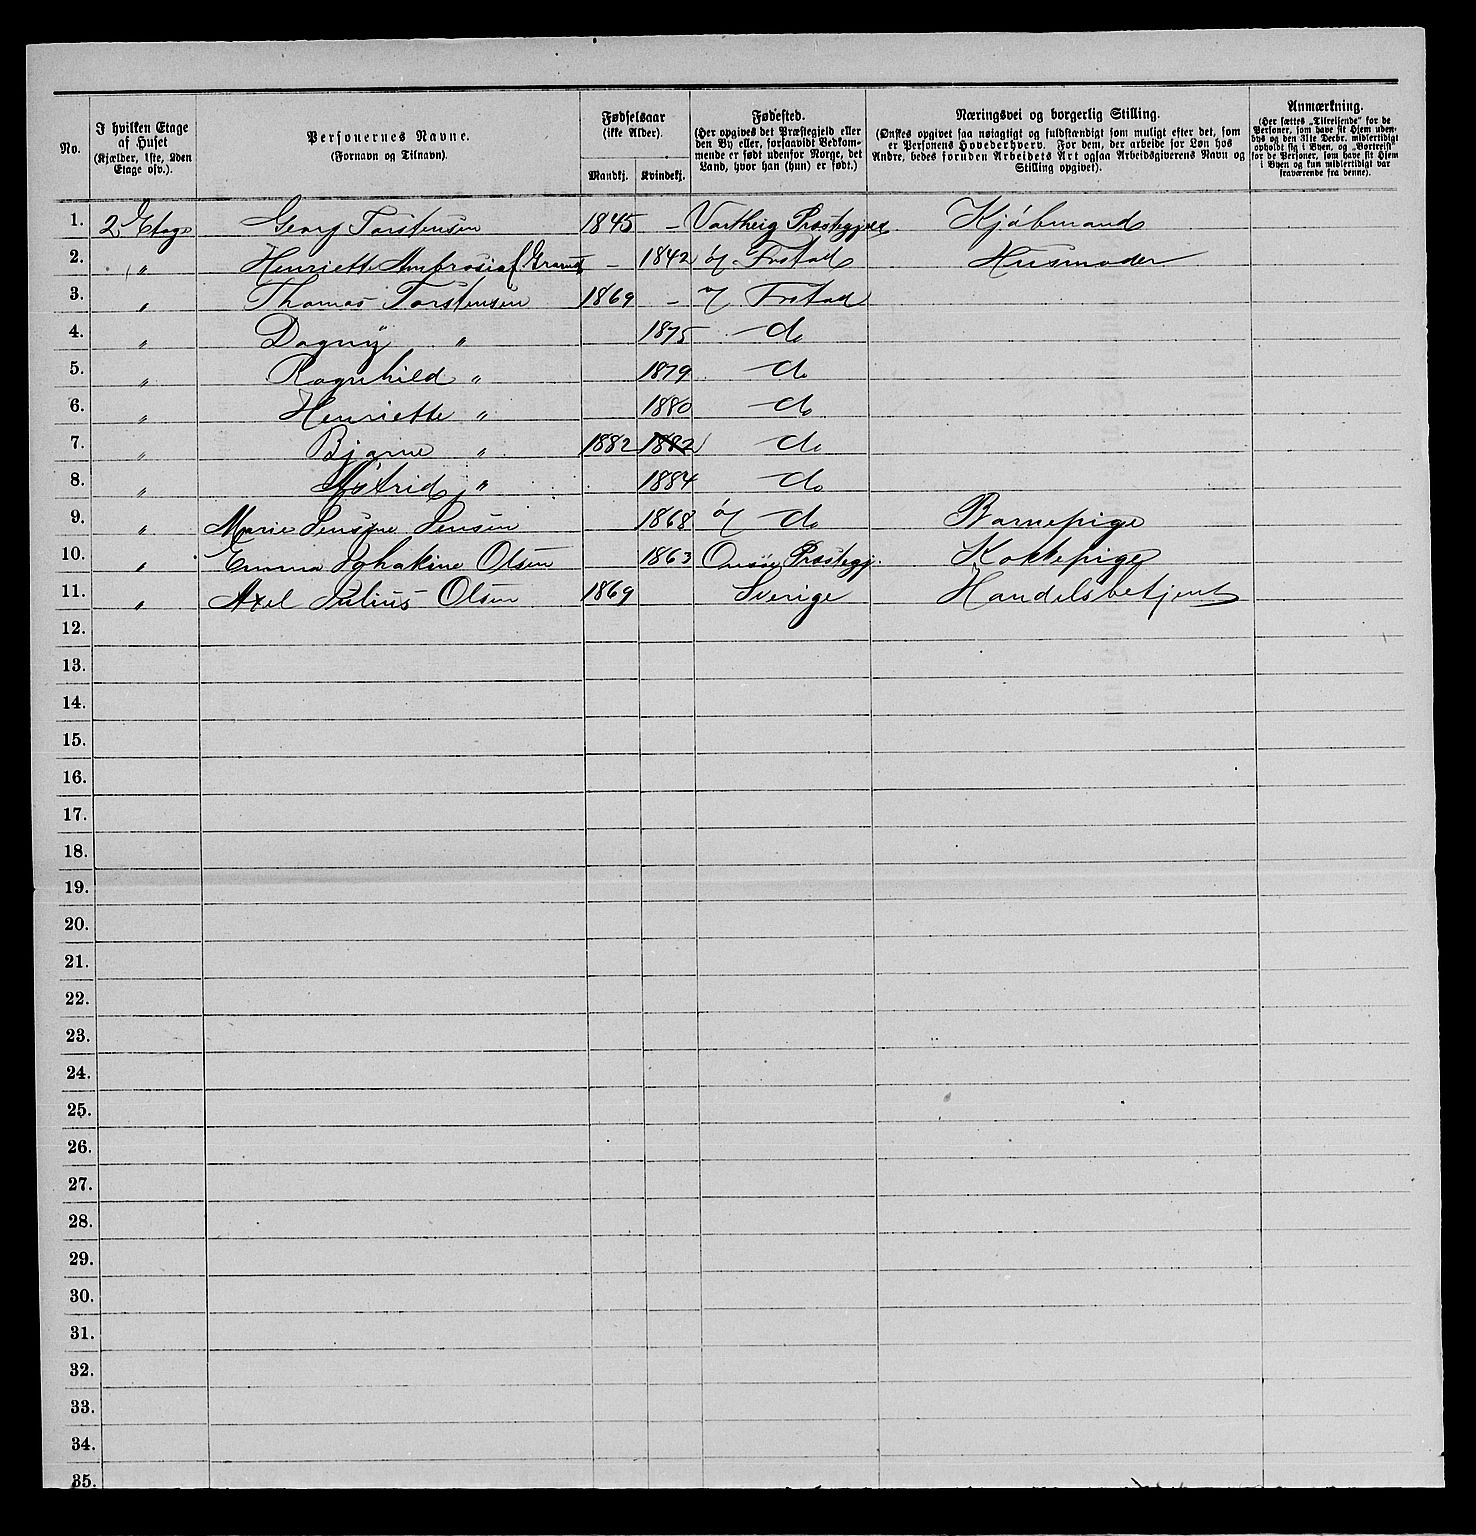 No.
I hvilken Etage af Huset (Kjælder, 1ste, 2den Etage osv.).
Personernes Navne. (Fornavn og Tilnavn).
Fødselsaar (ikke Alder).
Mandkj. Kvindekj.
Fødested. (Her opgives det Præstegjeld eller den By eller, forsaavidt Vedkommende er født udenfor Norge, det Land, hvor han (hun) er født.)
Næringsvei og borgerlig Stilling. (Ønskes opgivet saa nøiagtigt og fuldstændigt som muligt efter det, som er Personens Hovederhverv. For dem, der arbeide for Løn hos Andre, bedes foruden Arbeidets Art ogsaa Arbeidsgiverens Navn og Stilling opgivet).
Anmærkning. (Her sættes „Tilreisende“ for de Personer, som have sit Hjem udenbys og den 31te Decbr. midlertidigt opholdt sig i Byen, og „Bortreist“ for de Personer, som have sit Hjem i Byen og kun midlertidigt var fraværende fra denne).
1. 2 Etage Georg Torstensen 1845 – Vartheig Præstegjeld Kjøbmand
2. " Henriette Ambrosia f. – 1842 Frstad Husmoder
3. " Thomas Torstensen 1869 – Frstad
4. " Dagny " 1875 do
5. " Ragnhild " 1879 do
6. " Henriette " 1880 do
7. " Bjarne " 1882 1882 do
8. " Astrid " 1884 do
9. " Marie Jensine Jensen 1868 do Barnepige
10. " Emma Johakine Olsen 1863 Onsøe Præstegj. Kokkepige
11. " Axel Julius Olsen 1869 Sverige Handelsbetjent
12.
13.
14.
15.
16.
17.
18.
19.
20.
21.
22.
23.
24.
25.
26.
27.
28.
29.
30.
31.
32.
33.
34.
35.